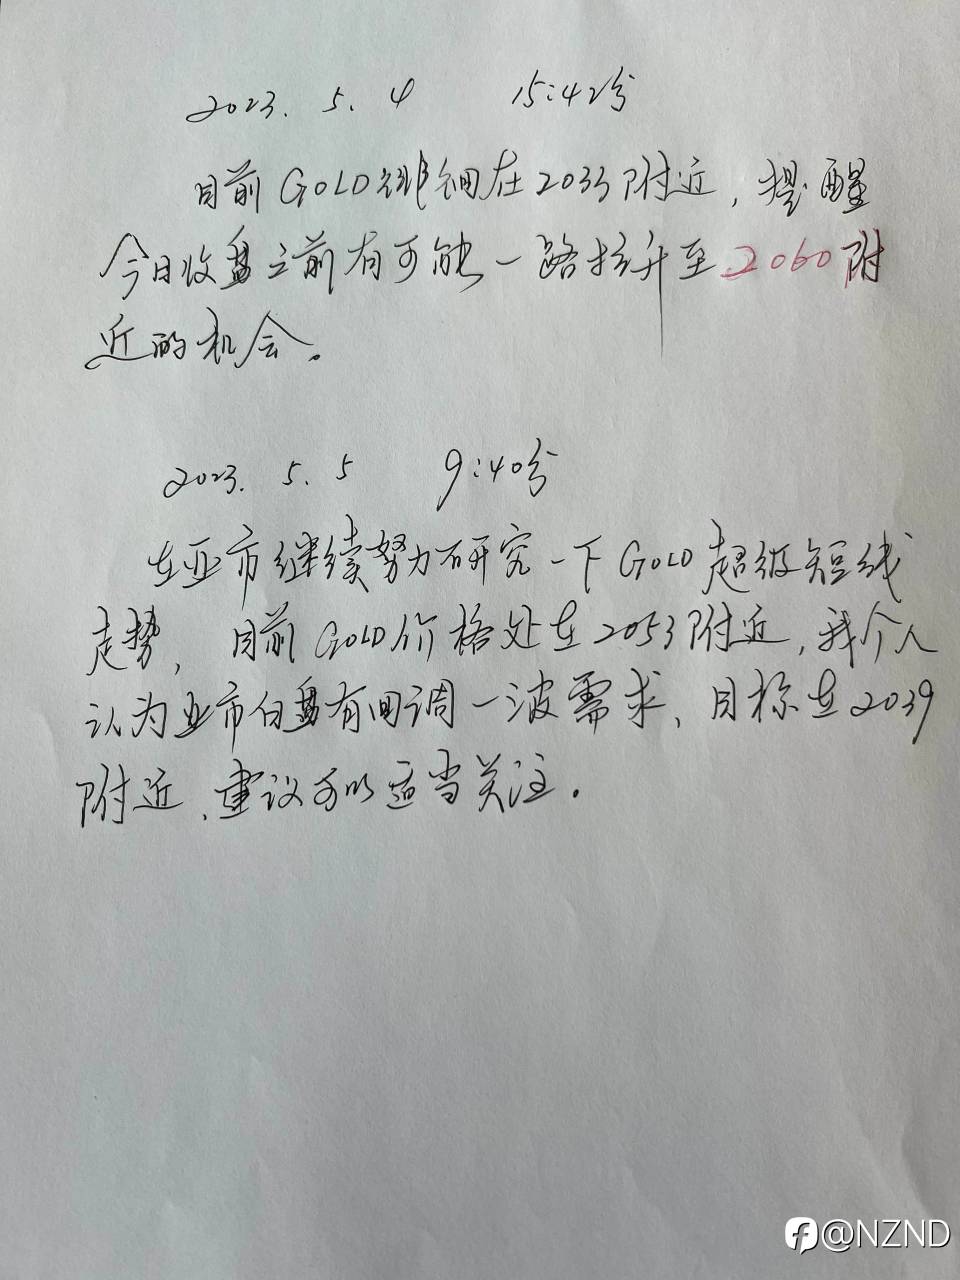 2023. 5. 4 15:42分
目前GOLD徘徊在2033附近,提醒
今日收盘之前有可能一路拉升至2060附
近的机会。
2023. 5. 5 9:40分
在亚市继续努力研究一下GOLD超级短线
走势,目前GOLD价格处在2053附近,我个人
认为亚市白盘有回调一波需求、目标在2039
附近、建议可以适当关注.
@NZND